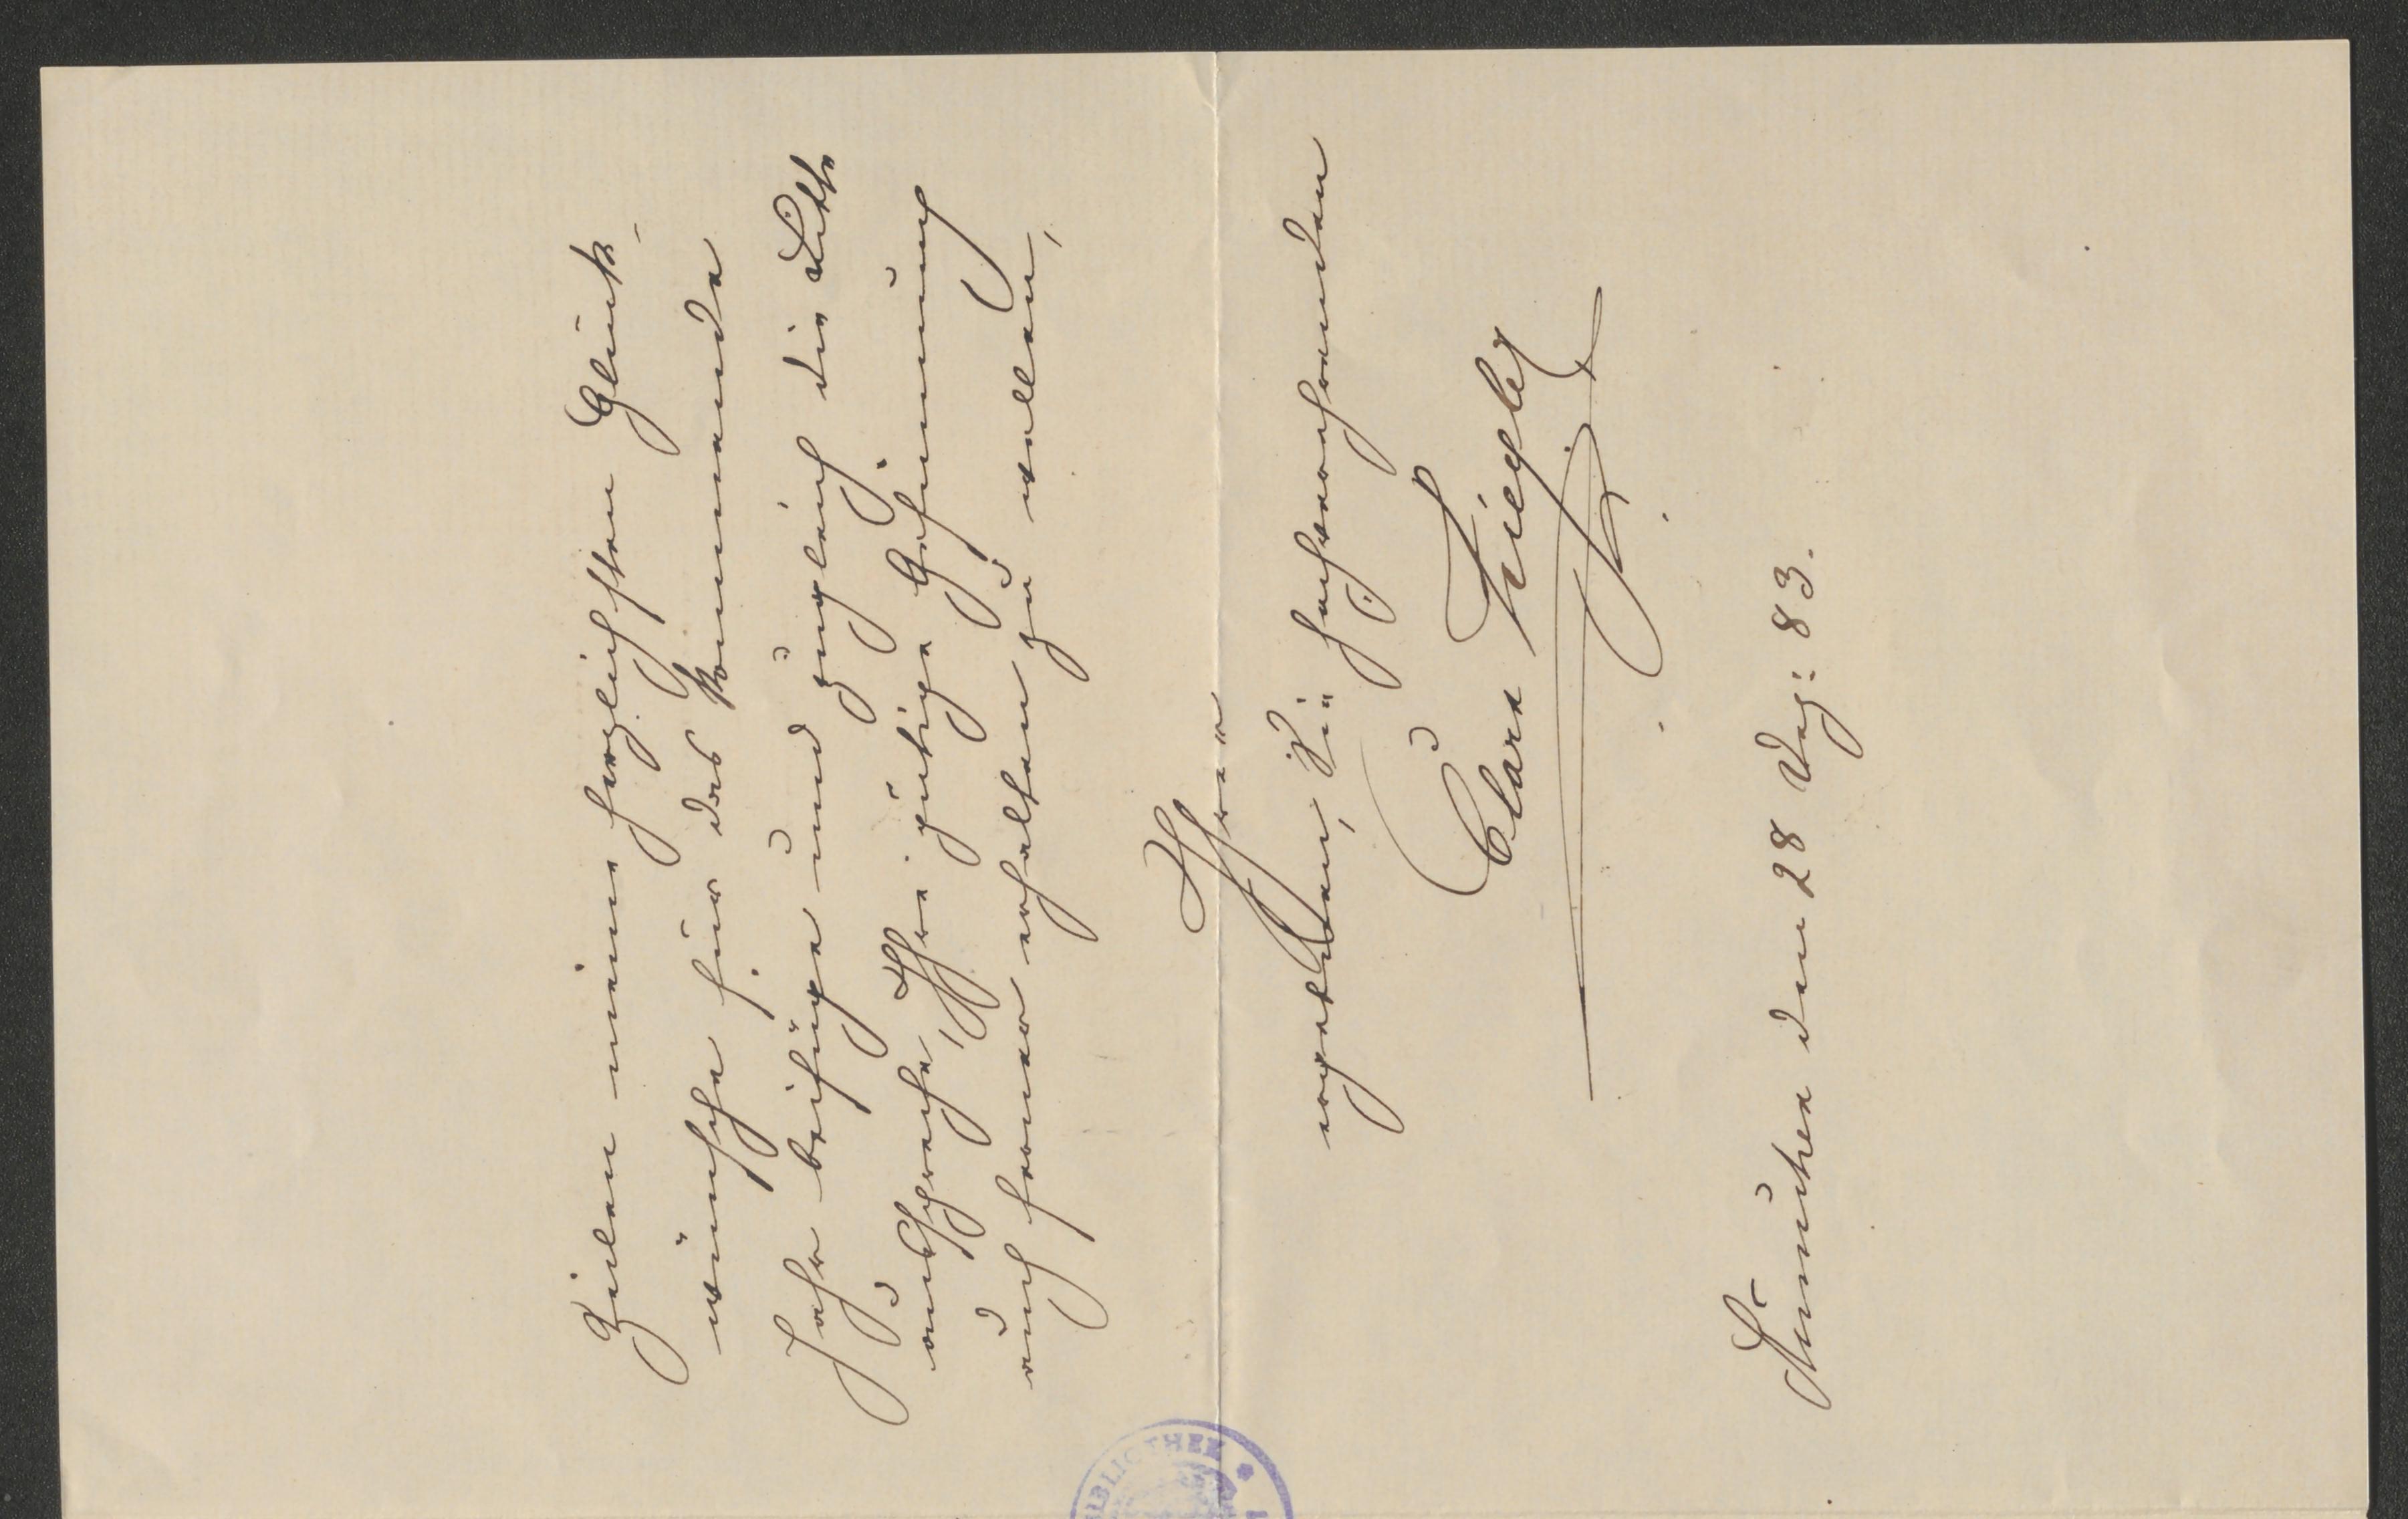 Zeilen meine herzlichsten Glück-
wünsche für das kommende
Jahr beifüge und zugleich die Bitte
ausspreche, Ihre gütige Gesinnung
auch ferner erhalten zu wollen,
Ihrer
ergebenen, Sie hochverehrenden
Clara Ziegler
München den 28 Dez: 83.
BIBLIOTHEK